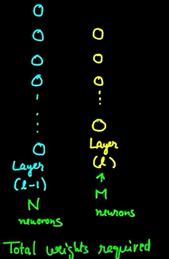 Layer
(l-1)
N
neurons
Layer
(l)
M
neurons
Total weights required